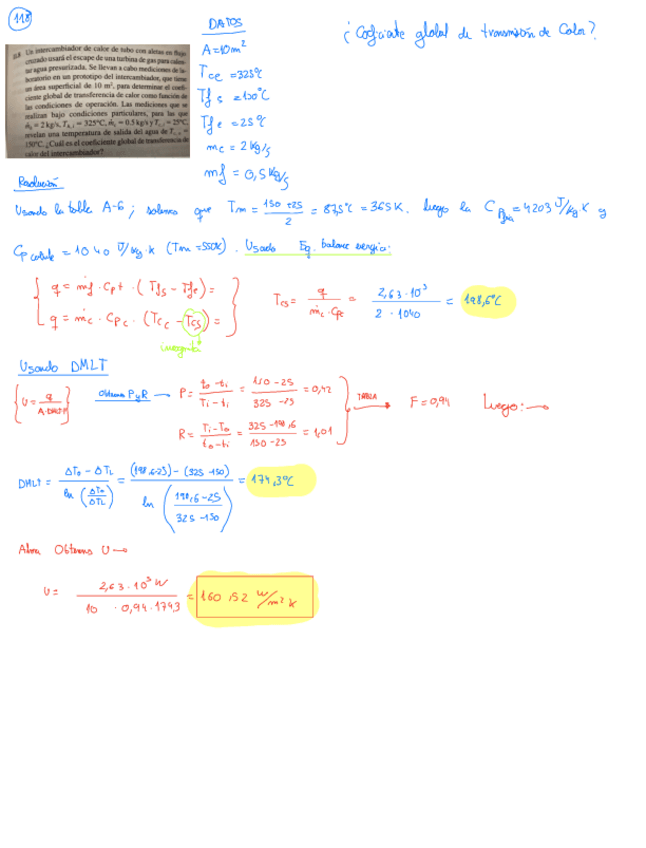 118
DATOS
¿Coeficiente global de transmisión de Calor?
11.8 Un intercambiador de calor de tubo con aletas en flujo
cruzado usará el escape de una turbina de gas para calen-
tar agua presurizada. Se llevan a cabo mediciones de la-
boratorio en un prototipo del intercambiador, que tiene
un área superficial de 10 m², para determinar el coefi-
ciente global de transferencia de calor como función de
las condiciones de operación. Las mediciones que se
realizan bajo condiciones particulares, para las que
ṁh = 2 kg/s, Th,i = 325°C, ṁc = 0.5 kg/s y Tc,i = 25°C,
revelan una temperatura de salida del agua de Tc,o =
150°C. ¿Cuál es el coeficiente global de transferencia de
calor del intercambiador?
A=10m²
Tce = 325°C
Tfs = 150°C
Tfe = 25°C
mc = 2 kg/s
mf = 0,5 kg/s
Resolución
Usando la tabla A-6; sabemos que Tm = 150+25/2 = 87,5°C = 365K. luego la Cp agua = 4203 J/kg K y
Cp caliente = 1040 J/kg·K (Tm = 550K). Usando Eq. balance energia:
q = ṁf · Cpf · (Tfs - Tfe) =
q = ṁc · Cpc · (Tce - Tcs) =
incognita
Tcs = q/ṁc·Cpc = 2,63·10⁵/2·1040 = 198,6°C
Usando DMLT
{U = q/A·DMLT·F} Obtenemos P y R → P = to-ti/Ti-ti = 150-25/325-25 = 0,42
R = Ti-To/to-ti = 325-198,6/150-25 = 1,01
TABLA → F = 0,94 Luego: →
DMLT = ΔTo - ΔTL/ln(ΔTo/ΔTL) = (198,6-25)-(325-150)/ln(198,6-25/325-150) = 174,3°C
Ahora Obtenemos U →
U = 2,63·10⁵ W/10 · 0,94·174,3 = 160,52 W/m² K